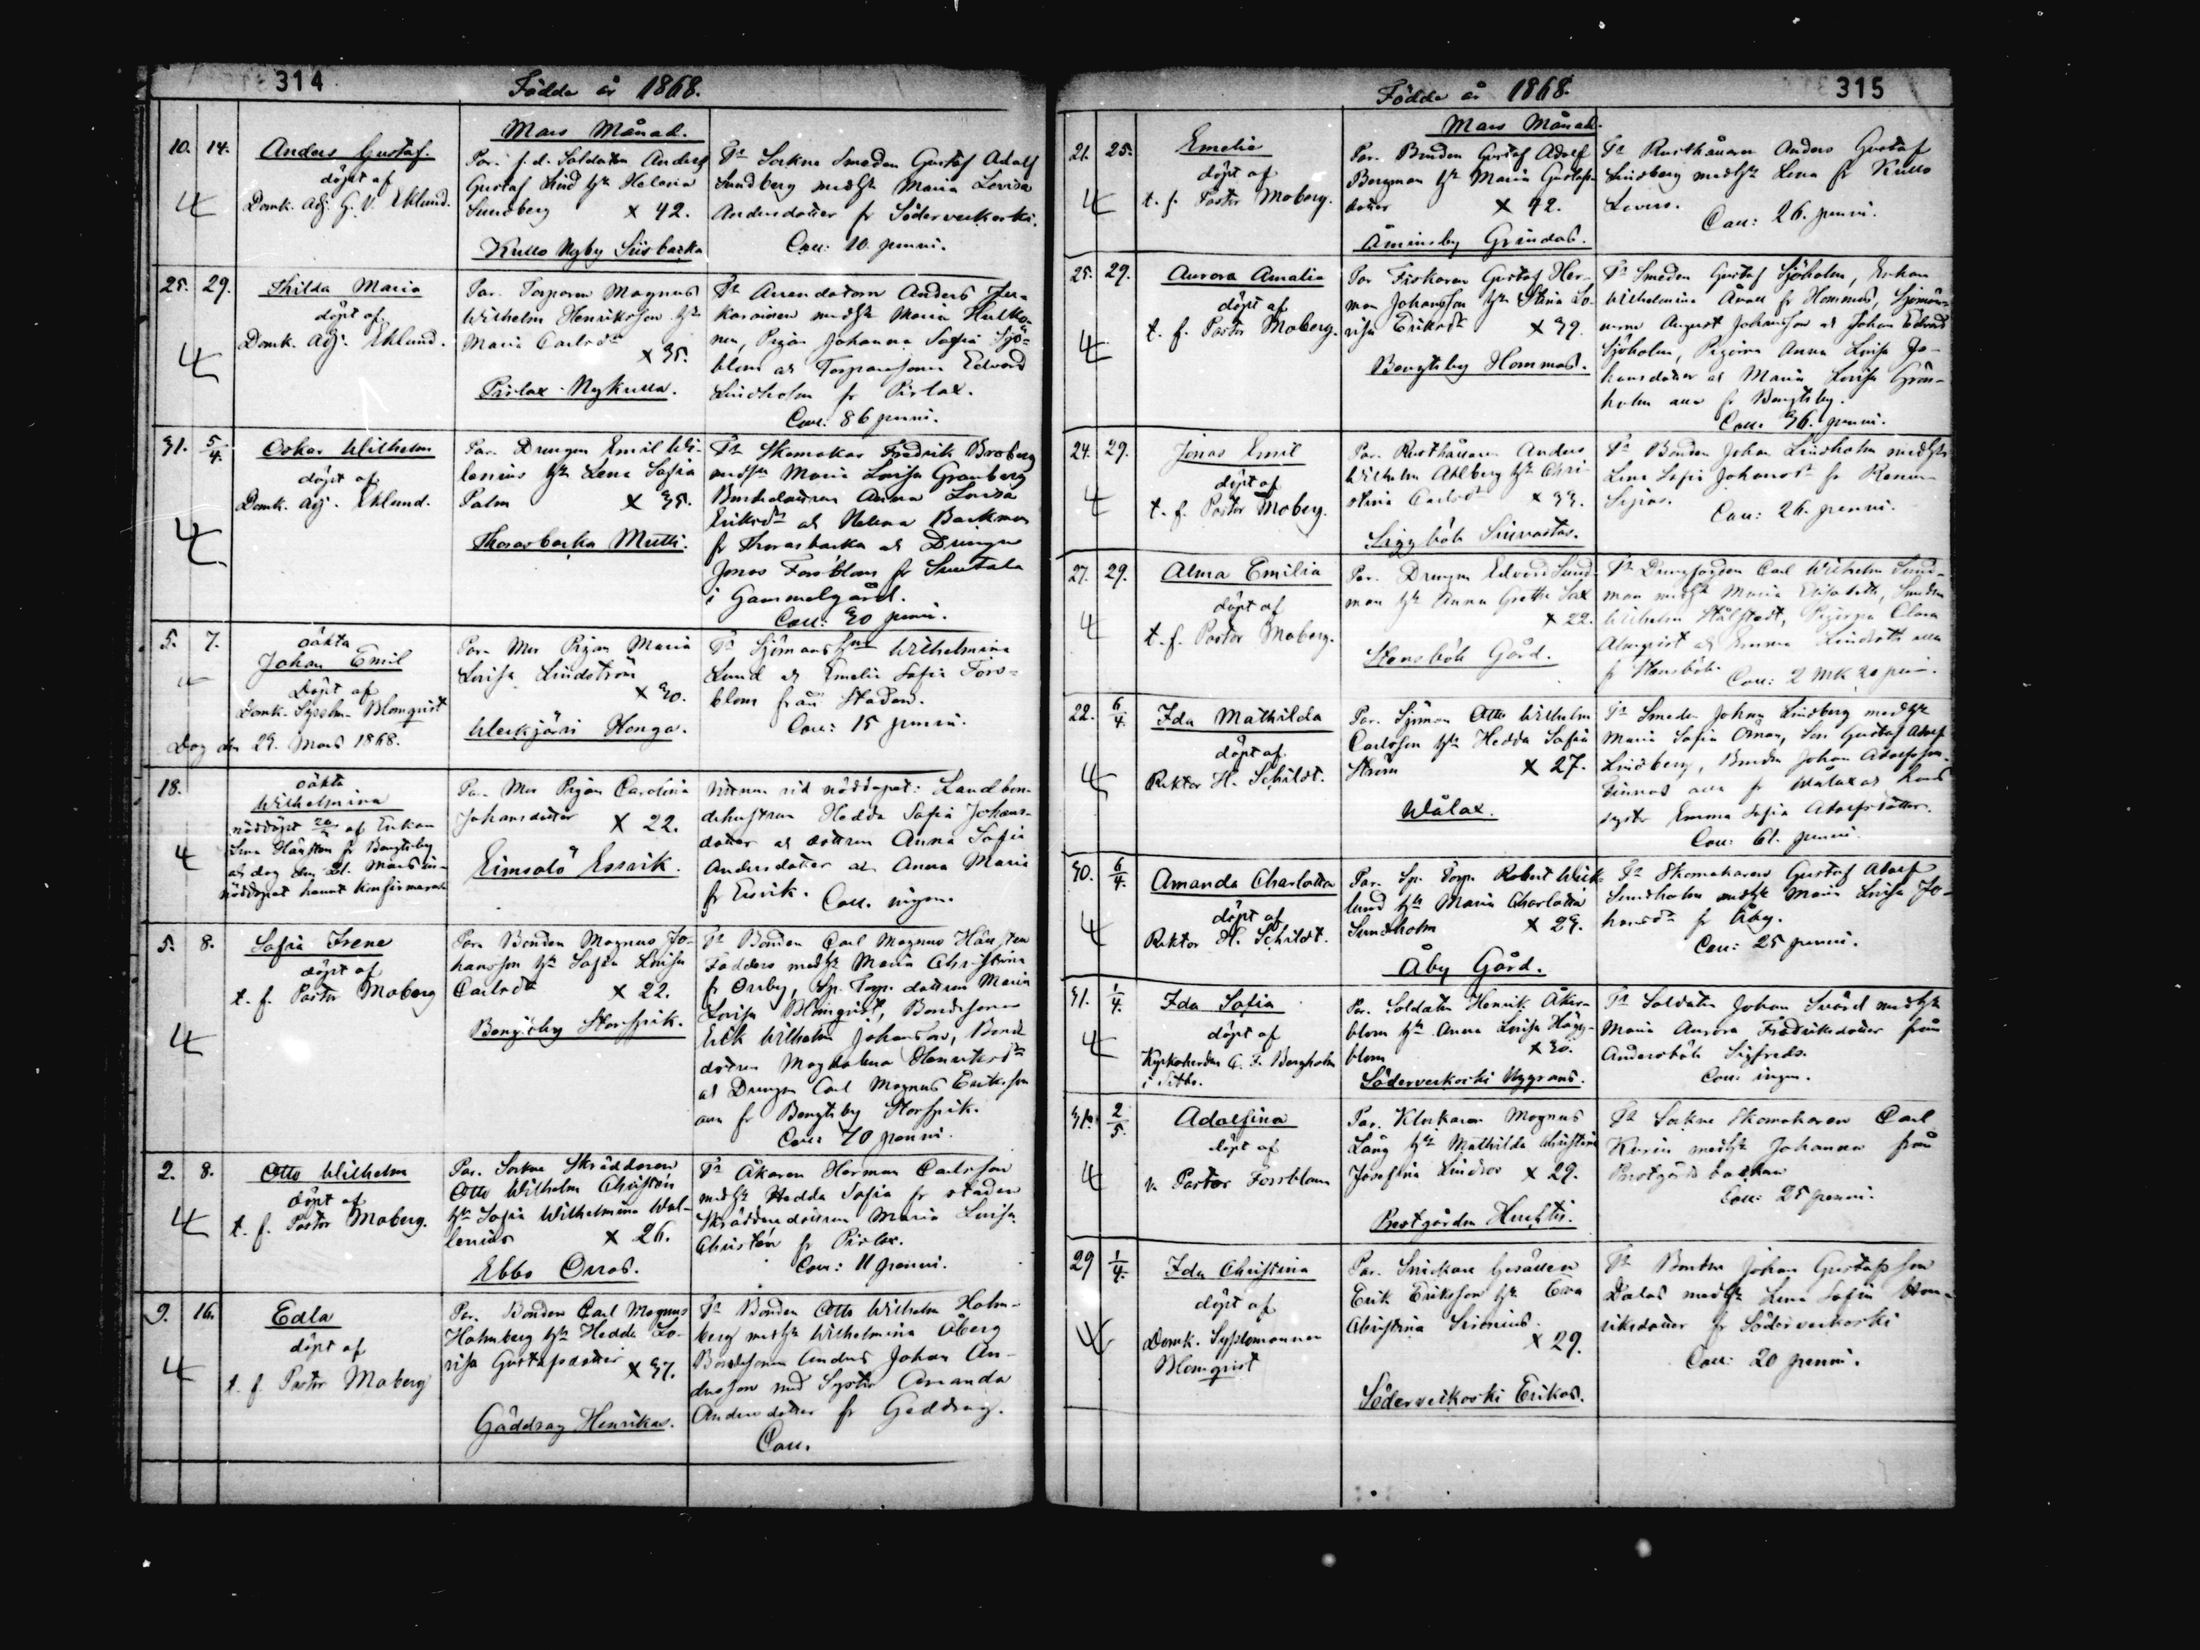 314
Födde år 1868.
Mars Månad.
10. 14. Anders Gustaf.
döpt af
Domk. Adj. G. V. Eklund.
Par. f. d. Soldaten Anders
Gustaf Lind h:u Helena
Sundberg x 42.
Kullo Nyby Siisbacka
Tn Sockne Smeden Gustaf Adolf
Sundberg med h:u Maria Lovisa
Andersdotter fr Söderveckoski.
Coll: 10 penni.
25. 29. Thilda Maria
döpt af
Domk. Adj. Eklund.
Par. Torparen Magnus
Wilhelm Henriksson h:u
Maria Carlsdr
x 35.
Pirlax Nykulla.
Tn Arrendatorn Anders
med h:u Maria
nen, Pigan Johanna Sofia Sjö-
blom och Torparesonen Edvard
Lindholm fr Pirlax.
Coll: 86 penni.
31. 5/4. Oskar Wilhelm
döpt af
Domk. Adj. Eklund.
Par. Drengen Emil Wi-
lenius h:u Lena Sofia
Palm x 35.
Thorasbacka Mutti.
Tn Skomakar Fredrik Broberg
med h:u Maria Lovisa Granberg
Anna Lovisa
Eriksdr och Helena Backman
fr Thorasbacka och Drengen
Jonas Forsblom fr
i Gammelgård.
Coll: 30 penni.
5. 7. oäkta
Johan Emil
Döpt af
Domk. Sysslm. Blomqvist
Dog den 29. Mars 1868.
Par. Mor Pigan Maria
Lovisa Lindström
x 30.
Weckjärvi Honga.
Tn Sjömans h:u Wilhelmina
Lund och Emelie Sofia Fors-
blom från Staden.
Coll: 15 penni.
18. oäkta
Wilhelmina
nöddöpt af Enkan
Lena Hängsten fr Bengtsby
och dog den 21. Mars
nöddopet hannt konfirmeras
Par. Mor Pigan Carolina
Johansdotter x 22.
Eimsalö Essvik.
Vittnen vid nöddopet: Landbon-
dehustrun Hedda Sofia Johans-
dotter och dottren Anna Sofia
Andersdotter och Anna Maria
fr Essvik. Coll. ingen.
5. 8. Sofia Irene
döpt af
t. f. Pastor Moberg
Par. Bonden Magnus Jo-
hansson h:u Sofia Lovisa
Carlsdr x 22.
Bengtsby Storspik.
Tn Bonden Carl Magnus Hängsten
Fadders med h:u Maria Christina
fr Orrby, Sp. Torp. dottren Maria
Lovisa Blomqvist, Bondesonen
Erik Wilhelm Johansson, Bond
dottren Magdalena Henriksdr
och Drengen Carl Magnus Eriksson
alla fr Bengtsby Storspik.
Coll: 70 penni.
2. 8. Otto Wilhelm
döpt af
t. f. Pastor Moberg.
Par. Sockne Skräddaren
Otto Wilhelm Christén
h:u Sofia Wilhelmina Wal-
lenius x 26.
Ebbo Orras.
Tn Åkaren Herman Carlsson
med h:u Hedda Sofia fr staden
Skräddaredottren Maria Lovisa
Christén fr Pirlax.
Coll: 11 penni.
9. 16. Edla
döpt af
t. f. Pastor Moberg
Par. Bonden Carl Magnus
Holmberg h:u Hedda Lo-
visa Gustafsdotter x 37.
Gäddrag Henrikas.
Tn Bonden Otto Wilhelm Holm-
berg med h:u Wilhelmina Åberg
Bondesonen Anders Johan An-
dersson med Syster Amanda
Andersdotter fr Geddrag.
Coll.
315
Födde år 1868.
Mars Månad.
21. 25. Emelie
döpt af
t. f. Pastor Moberg.
Par. Bonden Gustaf Adolf
Bergman h:u Maria Gustafs-
dotter x 42.
Åminsby Grindas.
Tn Rusthållaren Anders Gustaf
Lindberg med h:u Lena fr Kullo
Levers.
Coll: 26. penni.
25. 29. Aurora Amalia
döpt af
t. f. Pastor Moberg.
Par. Fiskaren Gustaf Her-
man Johansson h:u Stina Lo-
visa Eriksdr x 39.
Bengtsby Hommas.
Tn Smeden Gustaf Sjöholm, Enkan
Wilhelmina fr Hommas, Sjömän-
nerne August Johansson och Johan Edvard
Sjöholm, Pigorna Anna Lovisa Jo-
hansdotter och Maria Lovisa Grön-
holm alla fr Bengtsby.
Coll. 36. penni.
24. 29. Jonas Emil
döpt af
t. f. Pastor Moberg.
Par. Rusthållaren Anders
Wilhelm Ahlberg h:u Chri-
stina Carlsdr x 33.
Siggböle Sunnastas.
Tn Bonden Johan Lindholm med h:u
Lena Sofia Johansdr fr
Coll: 26. penni.
27. 29. Alma Emilia
döpt af
t. f. Pastor Moberg.
Par. Drengen Edvard Sund-
man h:u Anna Greta
x 22.
Stensböle Gård.
Tn Carl Wilhelm Sund-
man med h:u Maria Elisabeth, Smeden
Wilhelm Stålstedt, Pigorna Clara
Almqvist och Emma Lindroth alla
fr Stensböle. Coll: 2 mk 20 pen.
22. 6/4. Ida Mathilda
döpt af
Rektor H. Schildt.
Par. Sjöman Otto Wilhelm
Carlsson h:u Hedda Sofia
Ström x 27.
Wålax.
Tn Smeden Johan Lindberg med h:u
Maria Sofia Öman, Son Gustaf Adolf
Lindberg, Bonden Johan Adolfsson
Finnas alla fr Wålax och hans
syster Emma Sofia Adolfsdotter.
Coll: 61. penni.
30. 6/4. Amanda Charlotta
döpt af
Rektor H. Schildt.
Par. Sp. Torp. Robert Wick-
lund h:u Maria Charlotta
Sundholm x 29.
Åby Gård.
Tn Skomakaren Gustaf Adolf
Sundholm med h:u Maria Lovisa Jo-
hansdr fr Åby.
Coll: 25 penni.
31. 1/4. Ida Sofia
döpt af
Kyrkoherden C. F. Bergholm
i Sibbo.
Par. Soldaten Henrik Åker-
blom h:u Anna Lovisa Hägg-
blom x 30.
Söderveckoski Nygrans.
Tn Soldaten Johan Svärd med h:u
Maria Aurora Fredriksdotter från
Andersböle Sigfreds.
Coll: ingen.
31. 2/5. Adolfina
döpt af
v. Pastor Forsblom
Par. Klockaren Magnus
Lång h:u Mathilda Christina
Josefina Lindroos x 29.
Prestgården Huchtis.
Tn Sockne Skomakaren Carl
med h:u Johanna från
Prestgårdsbackan
Coll: 25 penni.
29 1/4. Ida Christina
döpt af
Domk. Sysslomannen
Blomqvist
Par. Snickare Gesällen
Erik Eriksson h:u Eva
Christina Sirenius.
x 29.
Söderveckoski Erikas.
Tn Bonden Johan Gustafsson
Dalas med h:u Lena Sofia Hen-
riksdotter fr Söderveckoski
Coll: 20 penni.